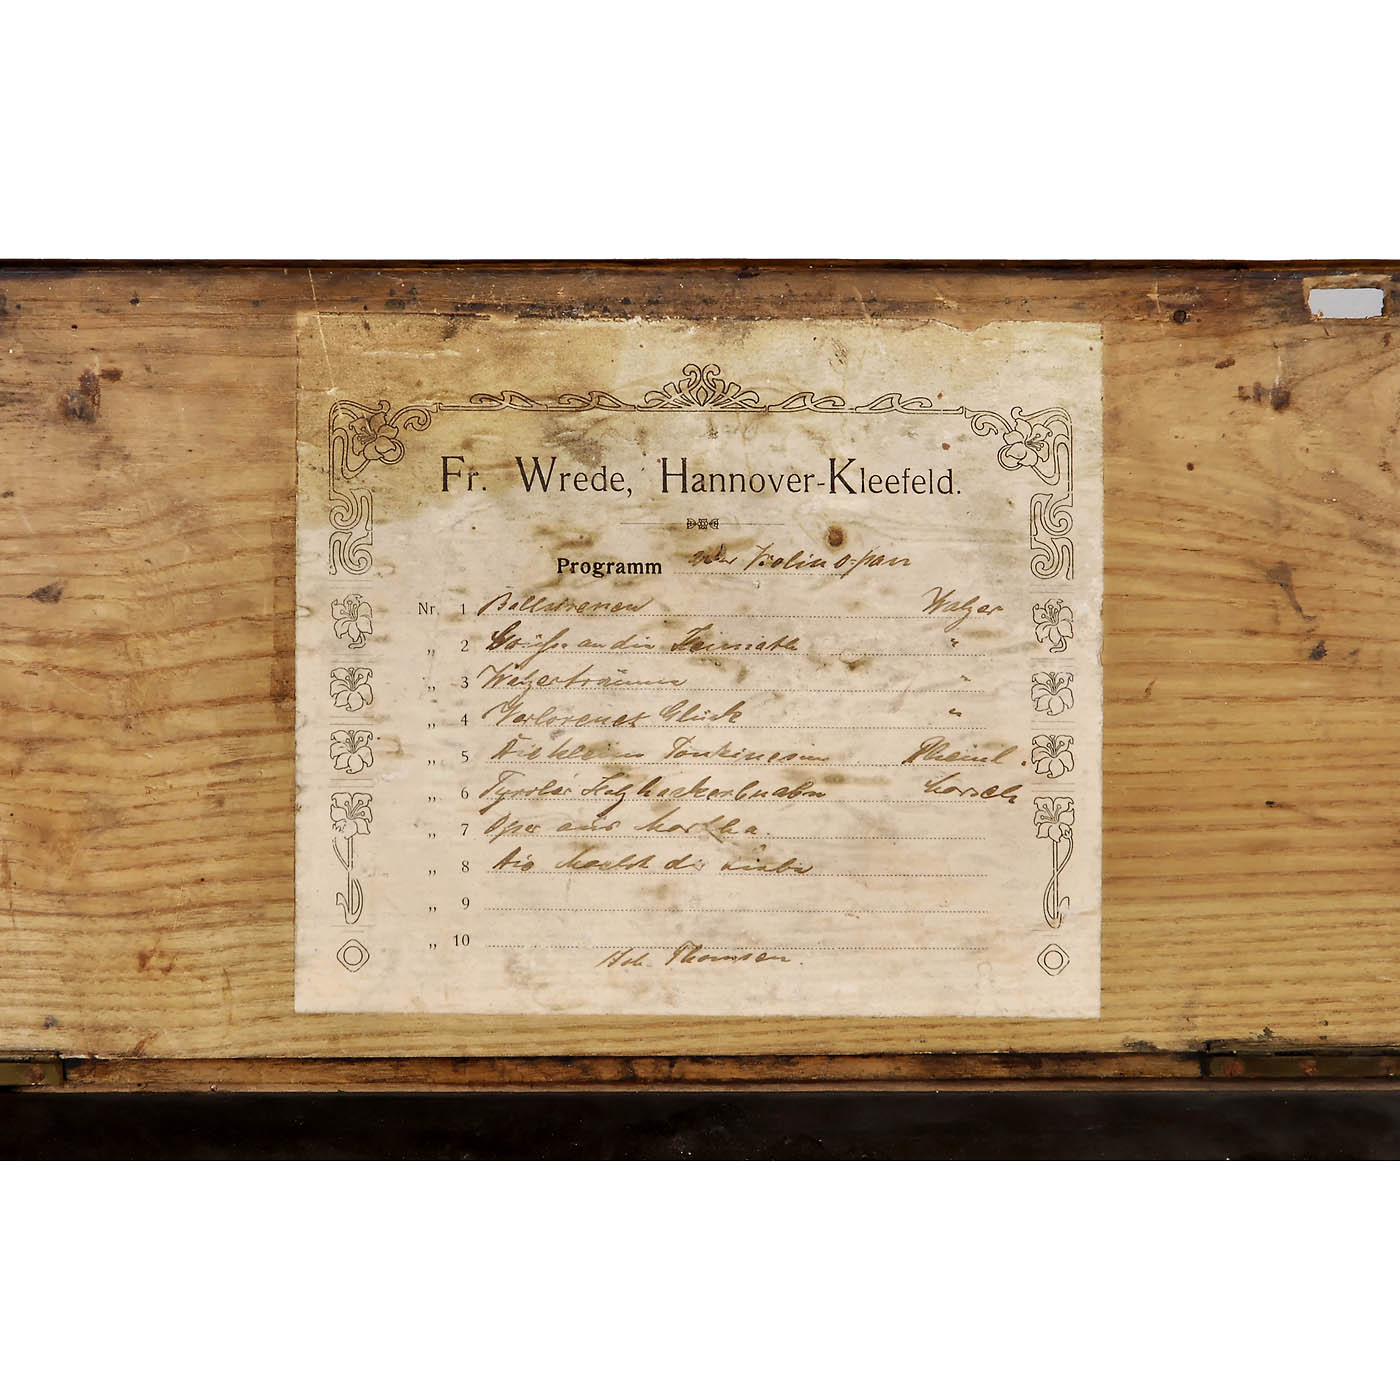 Fr. Wrede, Hannover-Kleefeld.
Programm der Violinopan
Nr. 1 Ballsirenen Walzer
„ 2 Grüße an die Heimath "
„ 3 Walzerträume "
„ 4 Verlorenes Glück "
„ 5 Die kleine Tonkinesin Rheinl.
„ 6 Tyroler Holzhackerbuabn Marsch
„ 7 Oper aus Martha.
„ 8 Die Macht der Liebe
„ 9
„ 10
Thomsen.